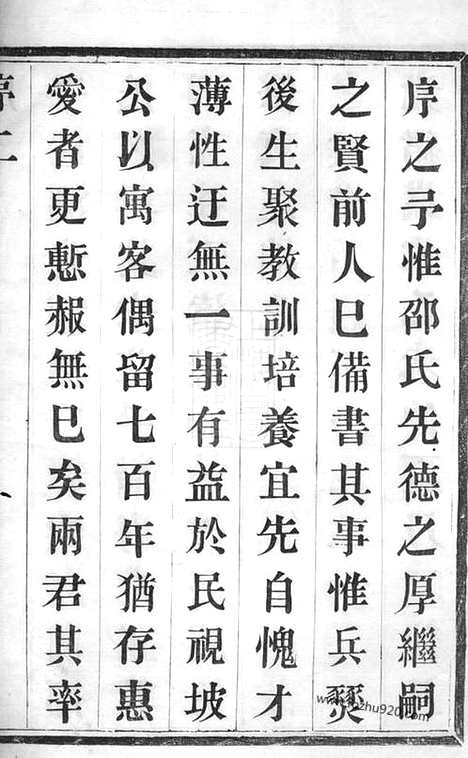 序之予惟邵氏先德之厚繼嗣
之賢前人已備書其事惟兵燹
後生聚教訓培養宜先自愧才
薄性迂無一事有益於民視坡
公以寓客偶留七百年猶存惠
愛者更慙赧無已矣兩君其率
序二
www.kfzhu920.com